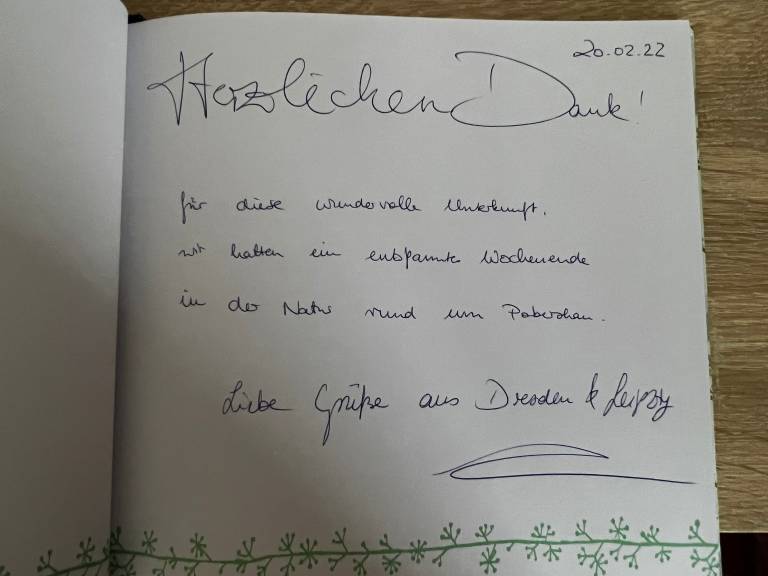 20.02.22
Herzlichen Dank!
für diese wundervolle Unterkunft.
wir hatten ein entspannte Wochenende
in der Natur rund um Pobershau.
Liebe Grüße aus Dresden & Leipzig